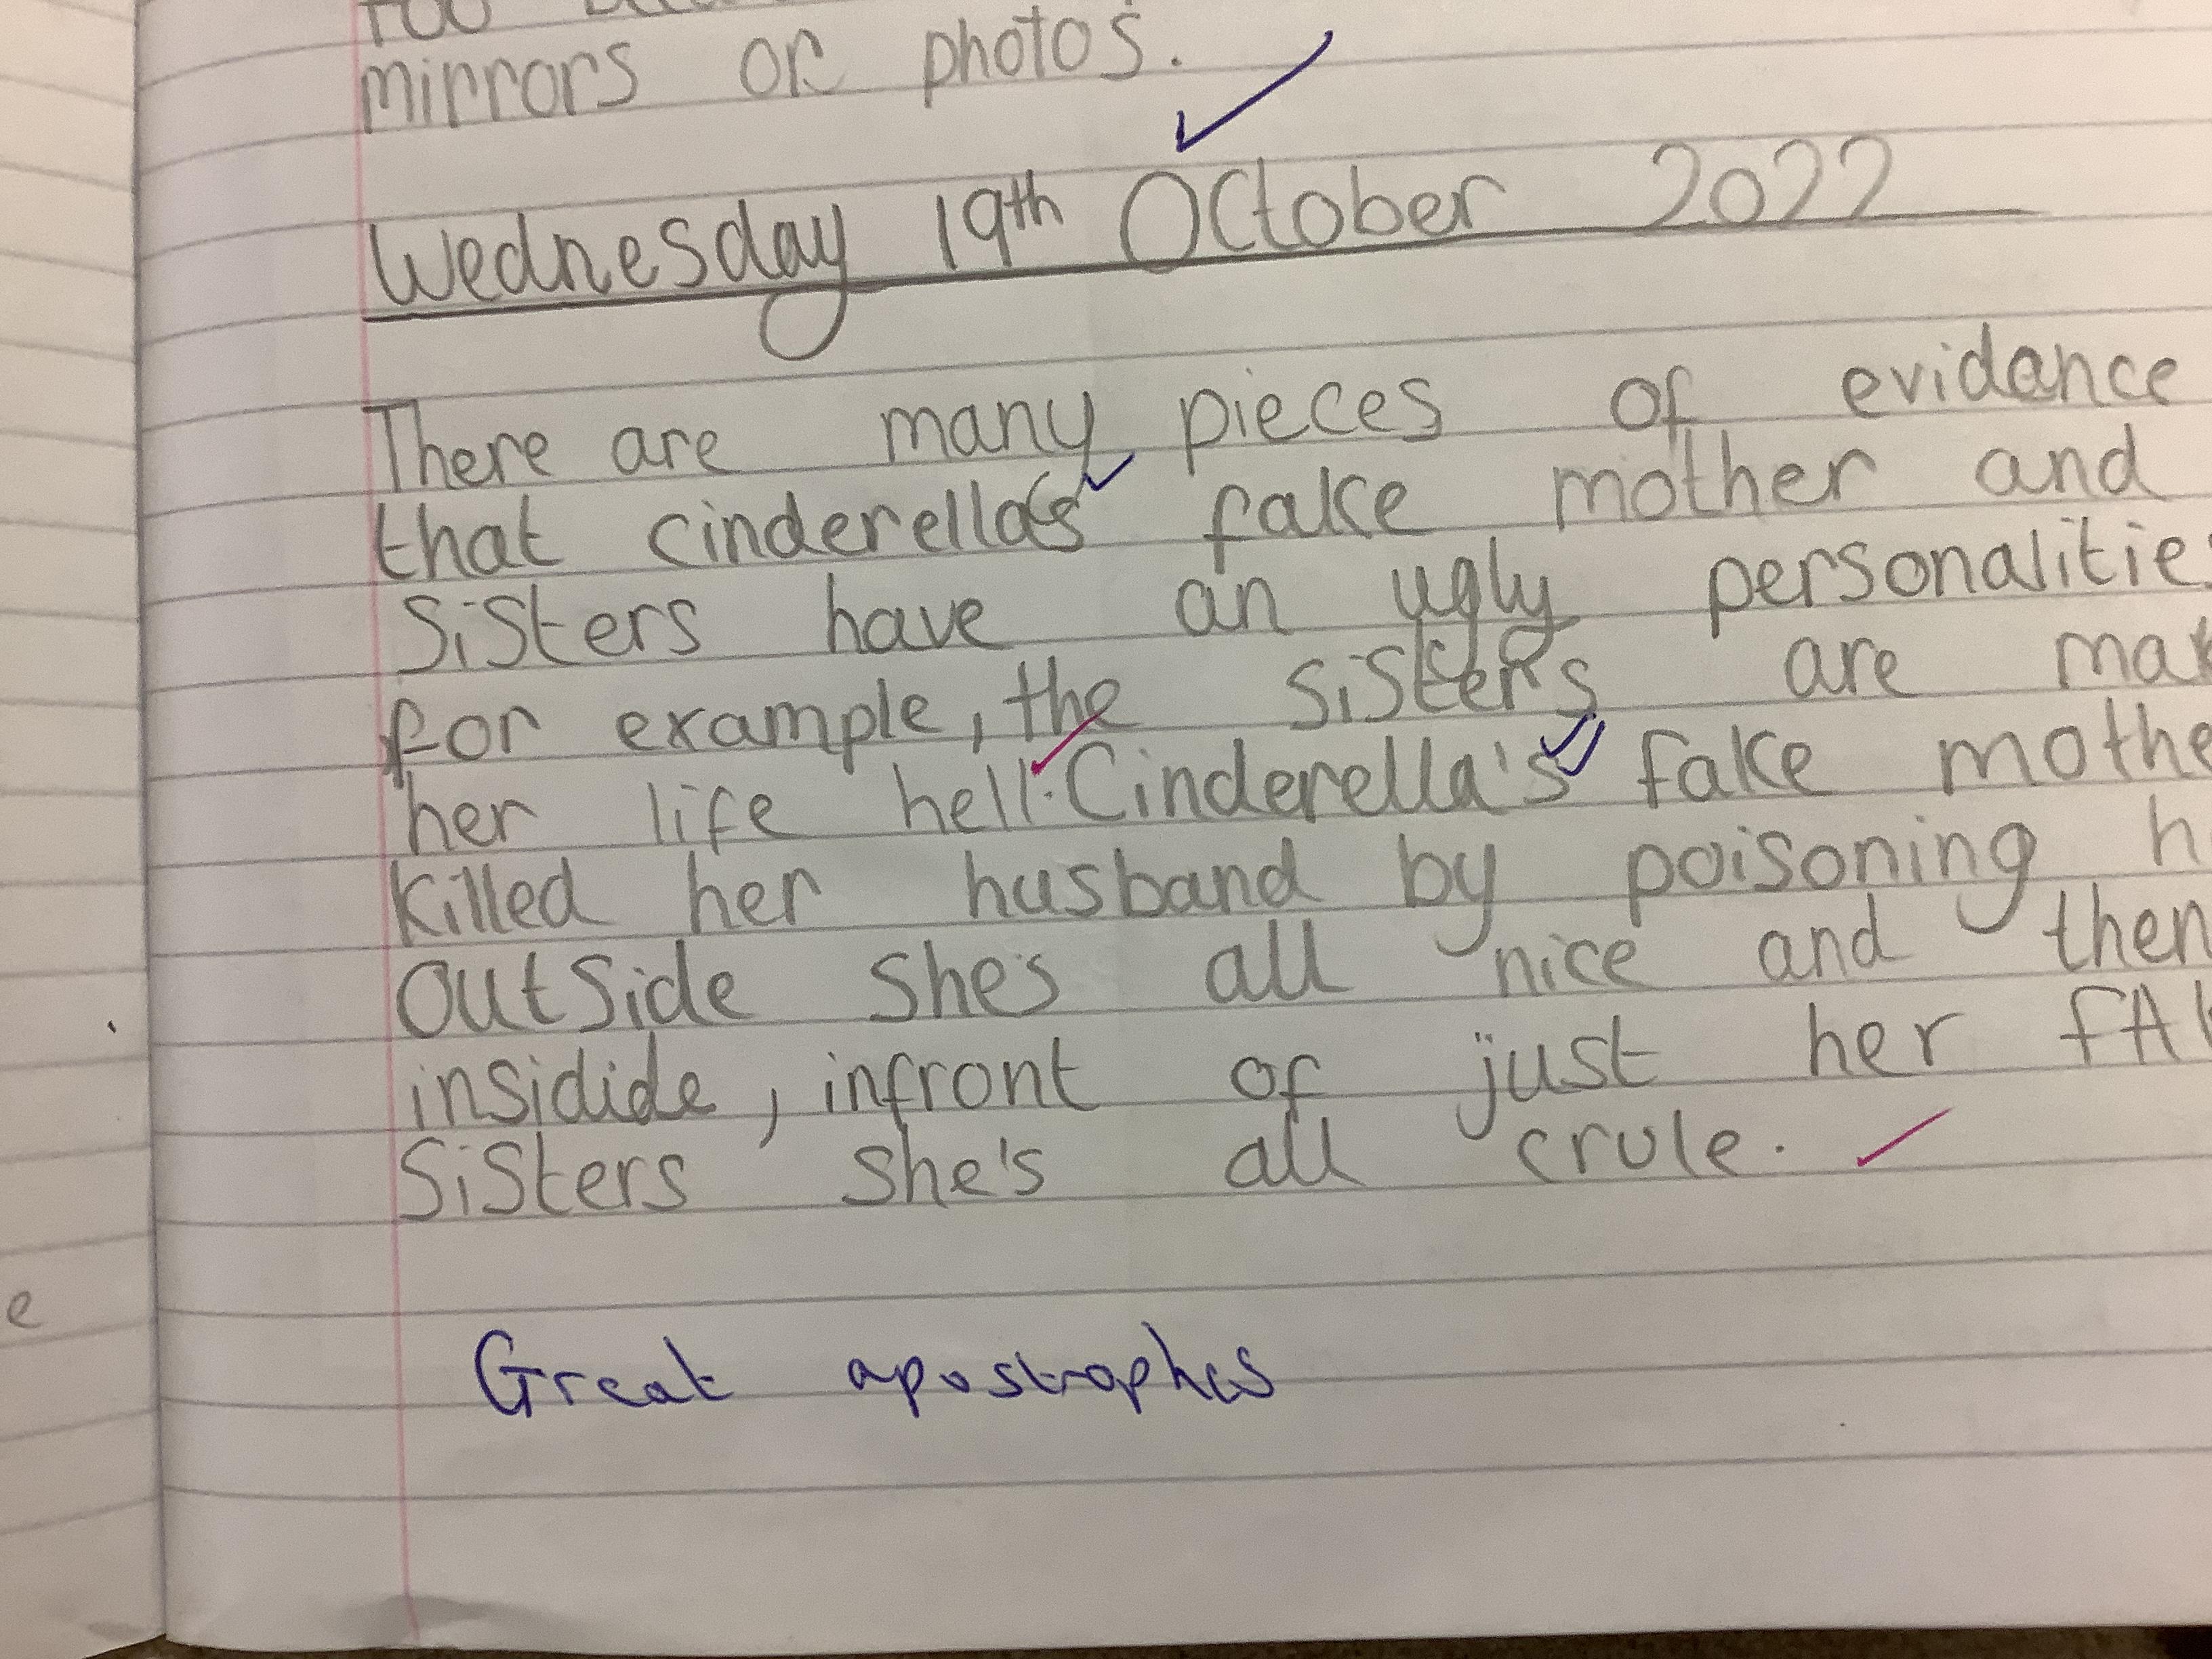 mirrors or photos.
Wednesday 19th October 2022
There are many pieces of evidance
that cinderella's fake mother and
Sisters have an ugly personalities
for example, the Sisters are
her life hell. Cinderella's fake
killed her husband by poisoning
outside she's all nice and then
insidide, infront of just her
Sisters she's all crule.
Great apostrophes
e